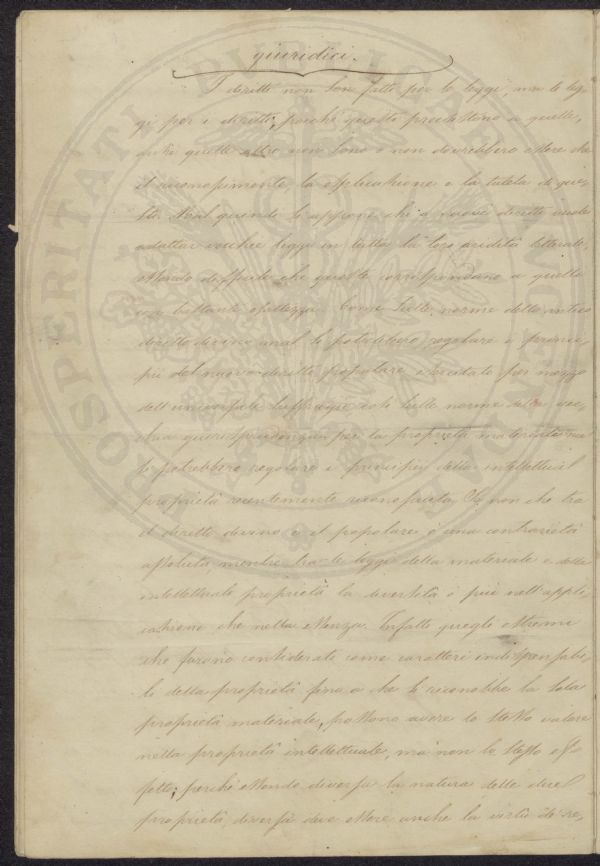 giuridici.
I diritti non son fatti per le leggi, ma le leg-
gi per i diritti; perchè questi preesistono a quelle,
anzi quelle altro non sono o non dovrebbero essere che
il riconoscimento, la esplicazione e la tutela di que-
sti. Mal quindi si appone chi a nuovi diritti vuole
adattar vecchie leggi in tutta la loro aridità letterale,
essendo difficile che queste corrispondano a quelli
con bastante esattezza. Come sulle norme dello antico
diritto divino mal si potrebbero regolare i princi-
pii del nuovo diritto popolare esercitato per mezzo
dell'universale suffragio, così sulle norme della vec-
chia giurisprudenza per la proprietà materiale mal
si potrebbero regolare i principii della intellettual
proprietà recentemente riconosciuta. Se non che tra
il diritto divino e il popolare è una contrarietà
assoluta, mentre tra le leggi della materiale e della
intellettuale proprietà la diversità è più nell'appli-
cazione che nella essenza. Infatti quegli estremi
che furono considerati come caratteri indispensabi-
li della proprietà fino a che si riconobbe la sola
proprietà materiale, possono avere lo stesso valore
nella proprietà intellettuale, ma non lo stesso ef-
fetto; perchè essendo diversa la natura delle due
proprietà, diversa deve essere anche la virtù di re-
PROSPERITATI PUBLICAE AUGENDAE